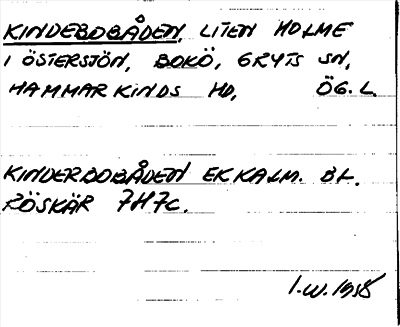 KINDEBOBÅDEN, LITEN HOLME
I ÖSTERSJÖN, BOKÖ, GRYTS SN,
HAMMARKINDS HD, ÖG. L.
KINDERBOBÅDEN EK.KALM. BL.
RÖSKÄR 7H7c.
I.W. 1958